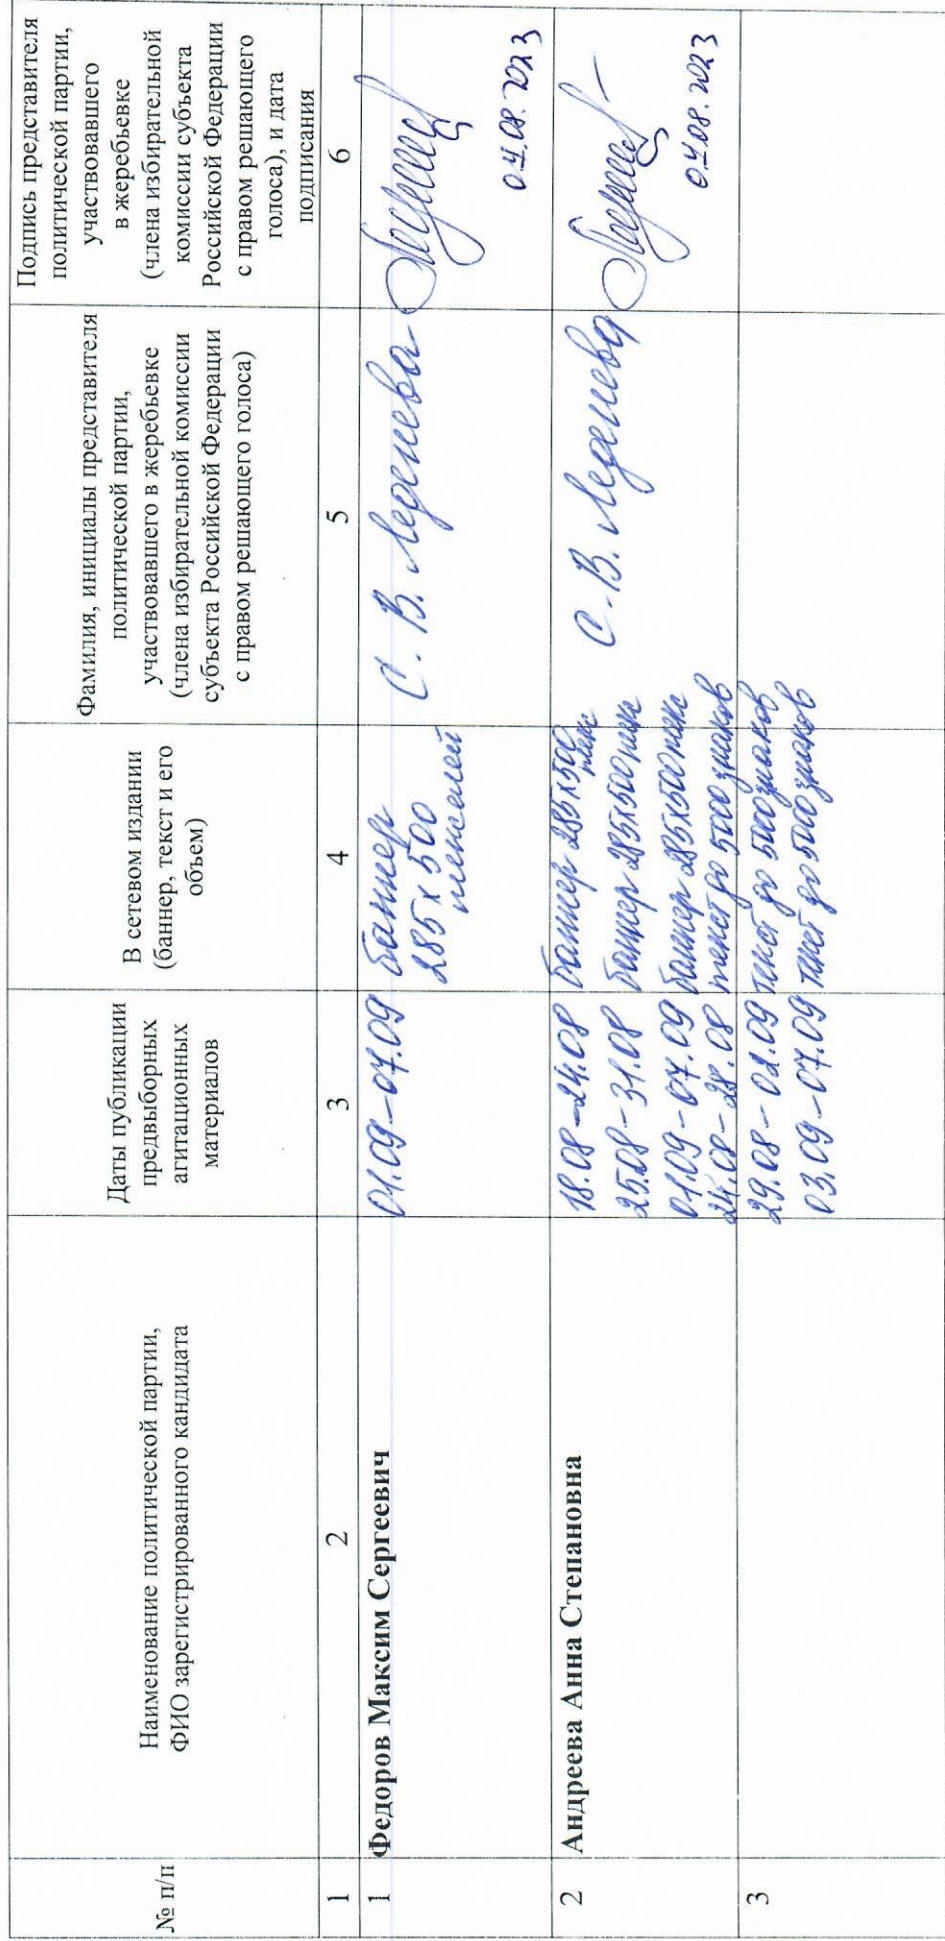 № п/п
Наименование политической партии,
ФИО зарегистрированного кандидата
Даты публикации
предвыборных
агитационных
материалов
В сетевом издании
(баннер, текст и его
объем)
Фамилия, инициалы представителя
политической партии,
участвовавшего в жеребьевке
(члена избирательной комиссии
субъекта Российской Федерации
с правом решающего голоса)
Подпись представителя
политической партии,
участвовавшего
в жеребьевке
(члена избирательной
комиссии субъекта
Российской Федерации
с правом решающего
голоса), и дата
подписания
1 2 3 4 5 6
1 Федоров Максим Сергеевич
01.09-07.09
баннер
285х500
пикселей
С. В. Леденева
04.08.2023
2 Андреева Анна Степановна
18.08-24.08 баннер 285х500 пикс
25.08-31.08 баннер 285х500 пикс
01.09-07.09 баннер 285х500 пикс
24.08-28.08 текст до 5000 знаков
С. В. Леденева
04.08.2023
3
29.08-02.09 текст до 5000 знаков
03.09-07.09 текст до 5000 знаков